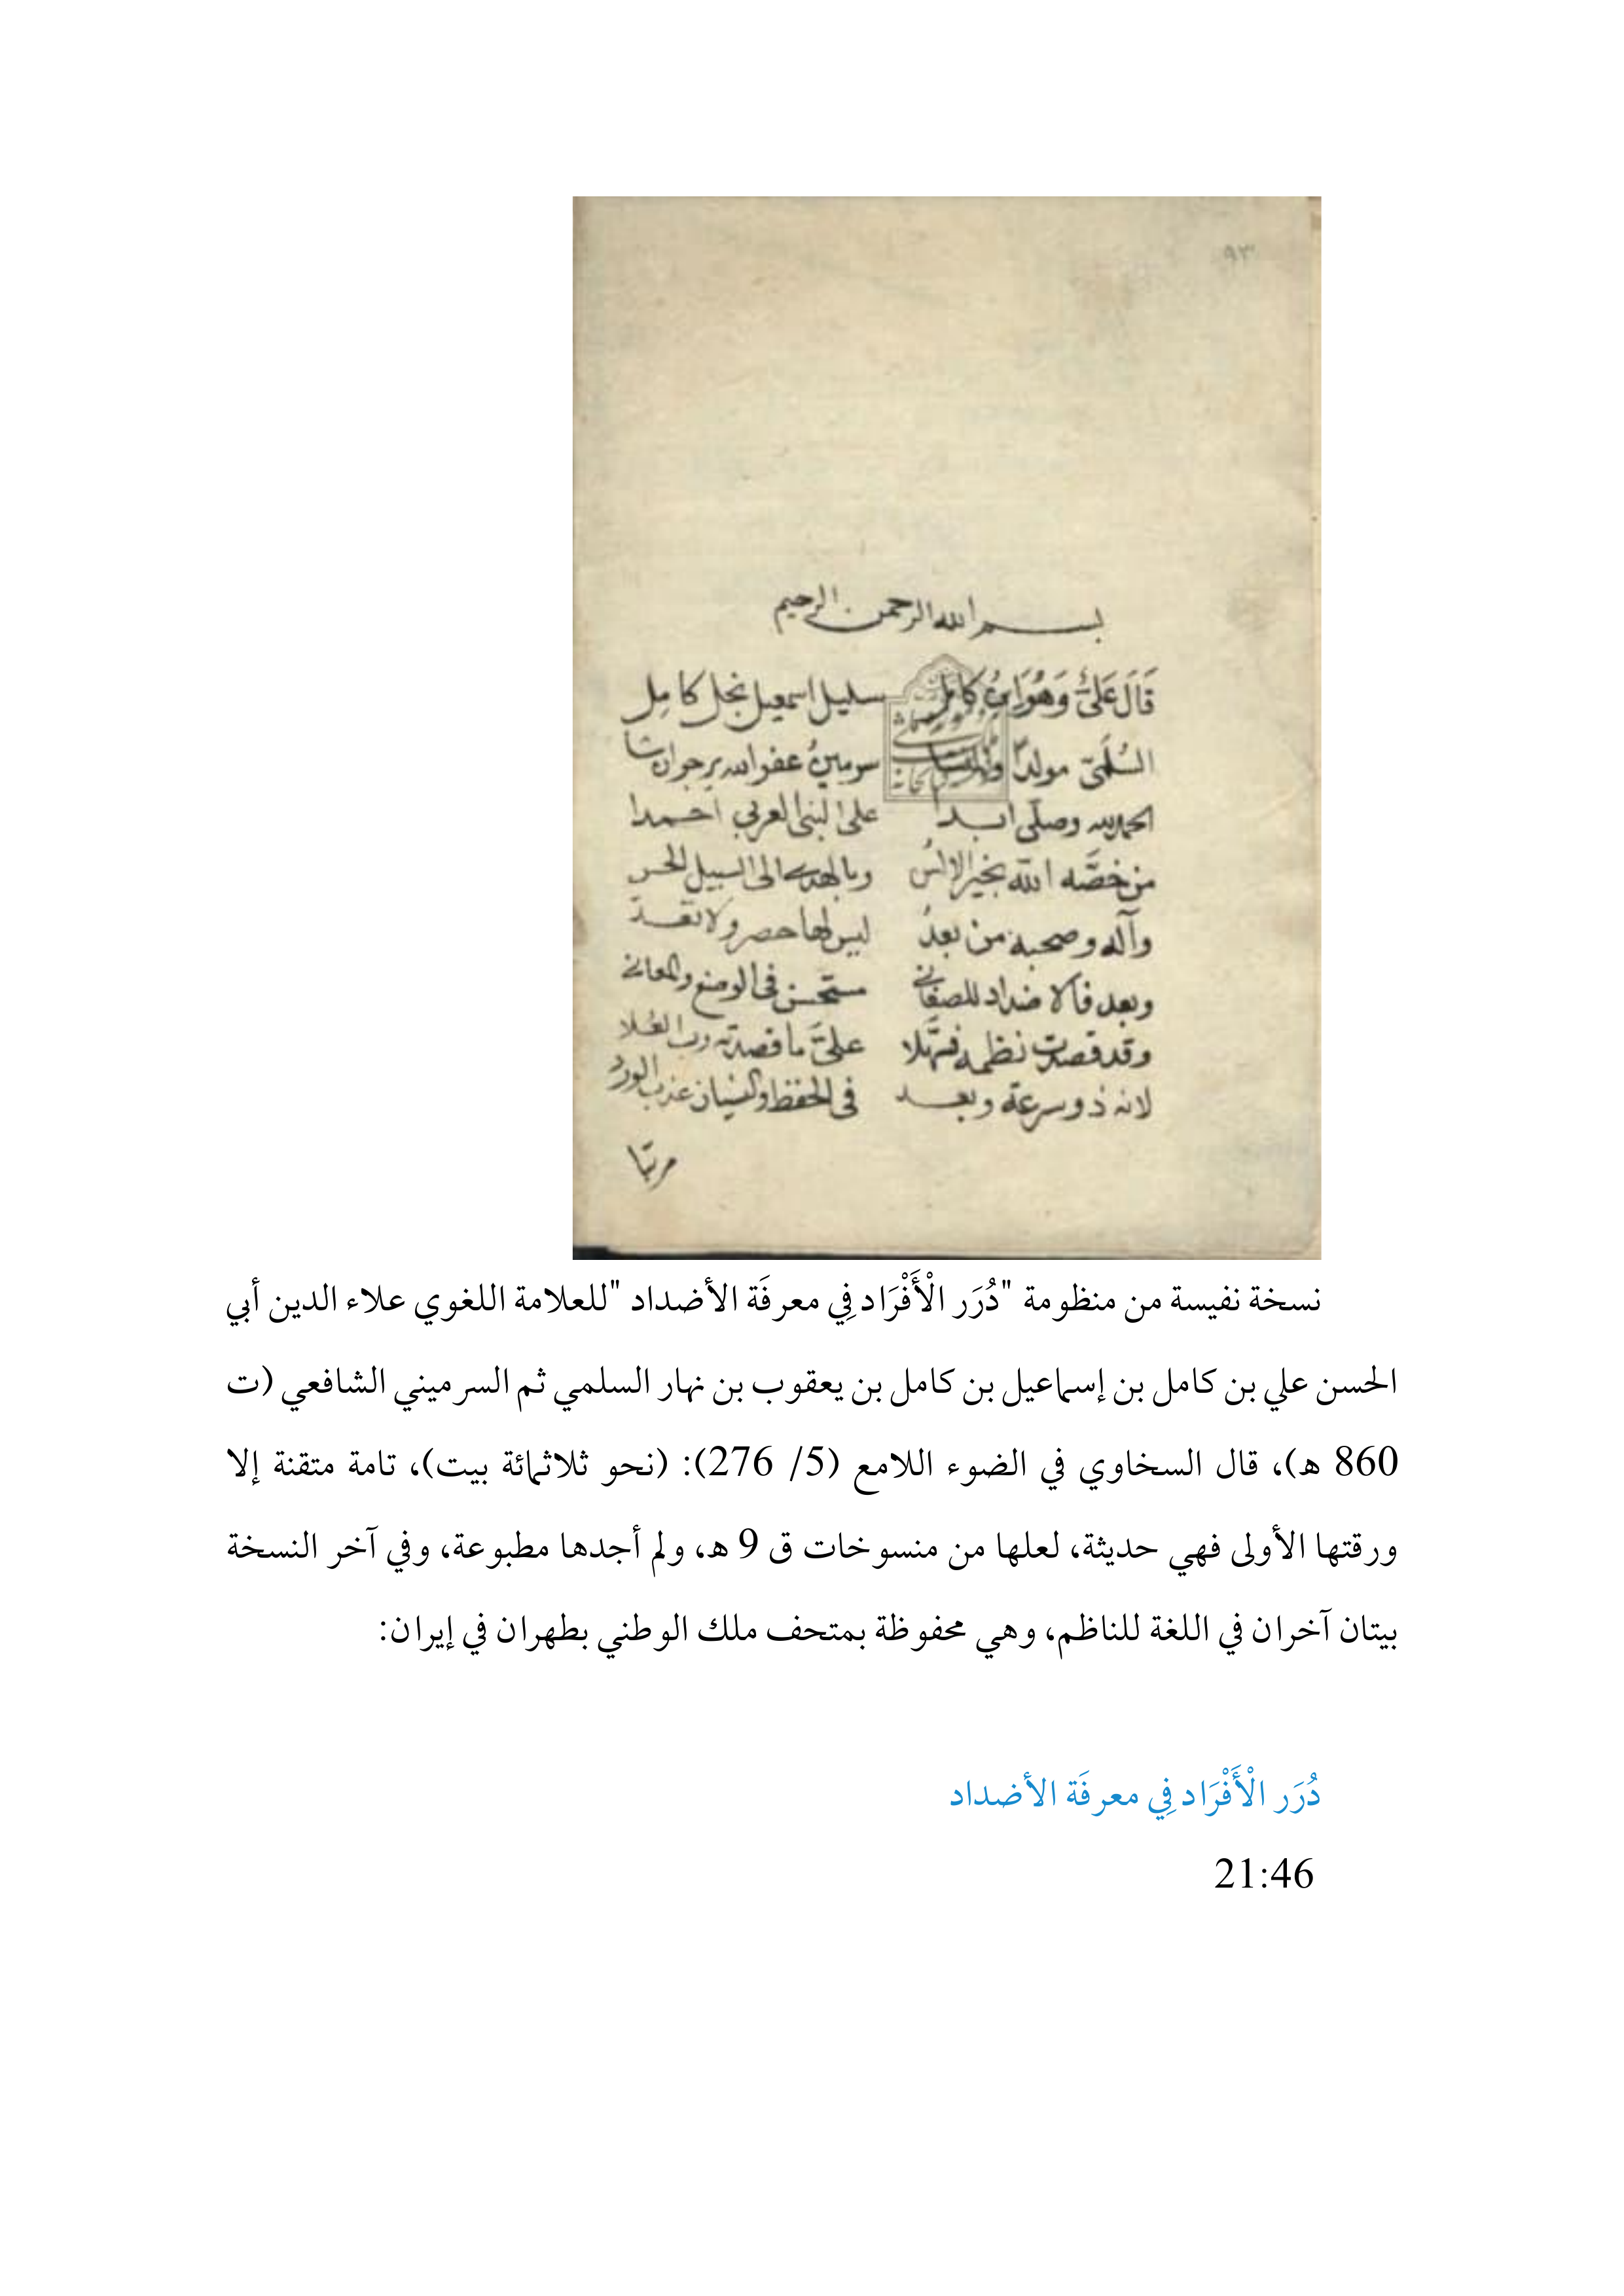 ٩٣
بسم الله الرحمن الرحيم
قَالَ عَلىٌّ وَهُوَ ابنُ كامل سليل اسمعيل نجل كامِل
السُلَمىّ مولدًا سرمينُ عفو الله يرجو ان شا
الحمد لله وصلى ابدا على النبى العربي احمدا
من خصَّه الله بخير الالسُن وبالهدى الى السبيل الحسن
وآله وصحبه من بعدُ ليس لها حصر ولا تعد
وبعد فالاضداد للصغانى مستحسن فى الوضع والمعانى
وقد قصدت نظمه فسهّلا علىَّ ما قصدته رب العُلا
لانه ذو سرعة وبعد فى الحفظ والنسيان عذب الورد
مرتبا
نسخة نفيسة من منظومة "دُرَر الْأَفْرَاد فِي معرفَة الأضداد "للعلامة اللغوي علاء الدين أبي
الحسن علي بن كامل بن إسماعيل بن كامل بن يعقوب بن نهار السلمي ثم السرميني الشافعي (ت
860 هـ)، قال السخاوي في الضوء اللامع (5/ 276): (نحو ثلاثمائة بيت)، تامة متقنة إلا
ورقتها الأولى فهي حديثة، لعلها من منسوخات ق 9 هـ، ولم أجدها مطبوعة، وفي آخر النسخة
بيتان آخران في اللغة للناظم، وهي محفوظة بمتحف ملك الوطني بطهران في إيران:
دُرَر الْأَفْرَاد فِي معرفَة الأضداد
21:46